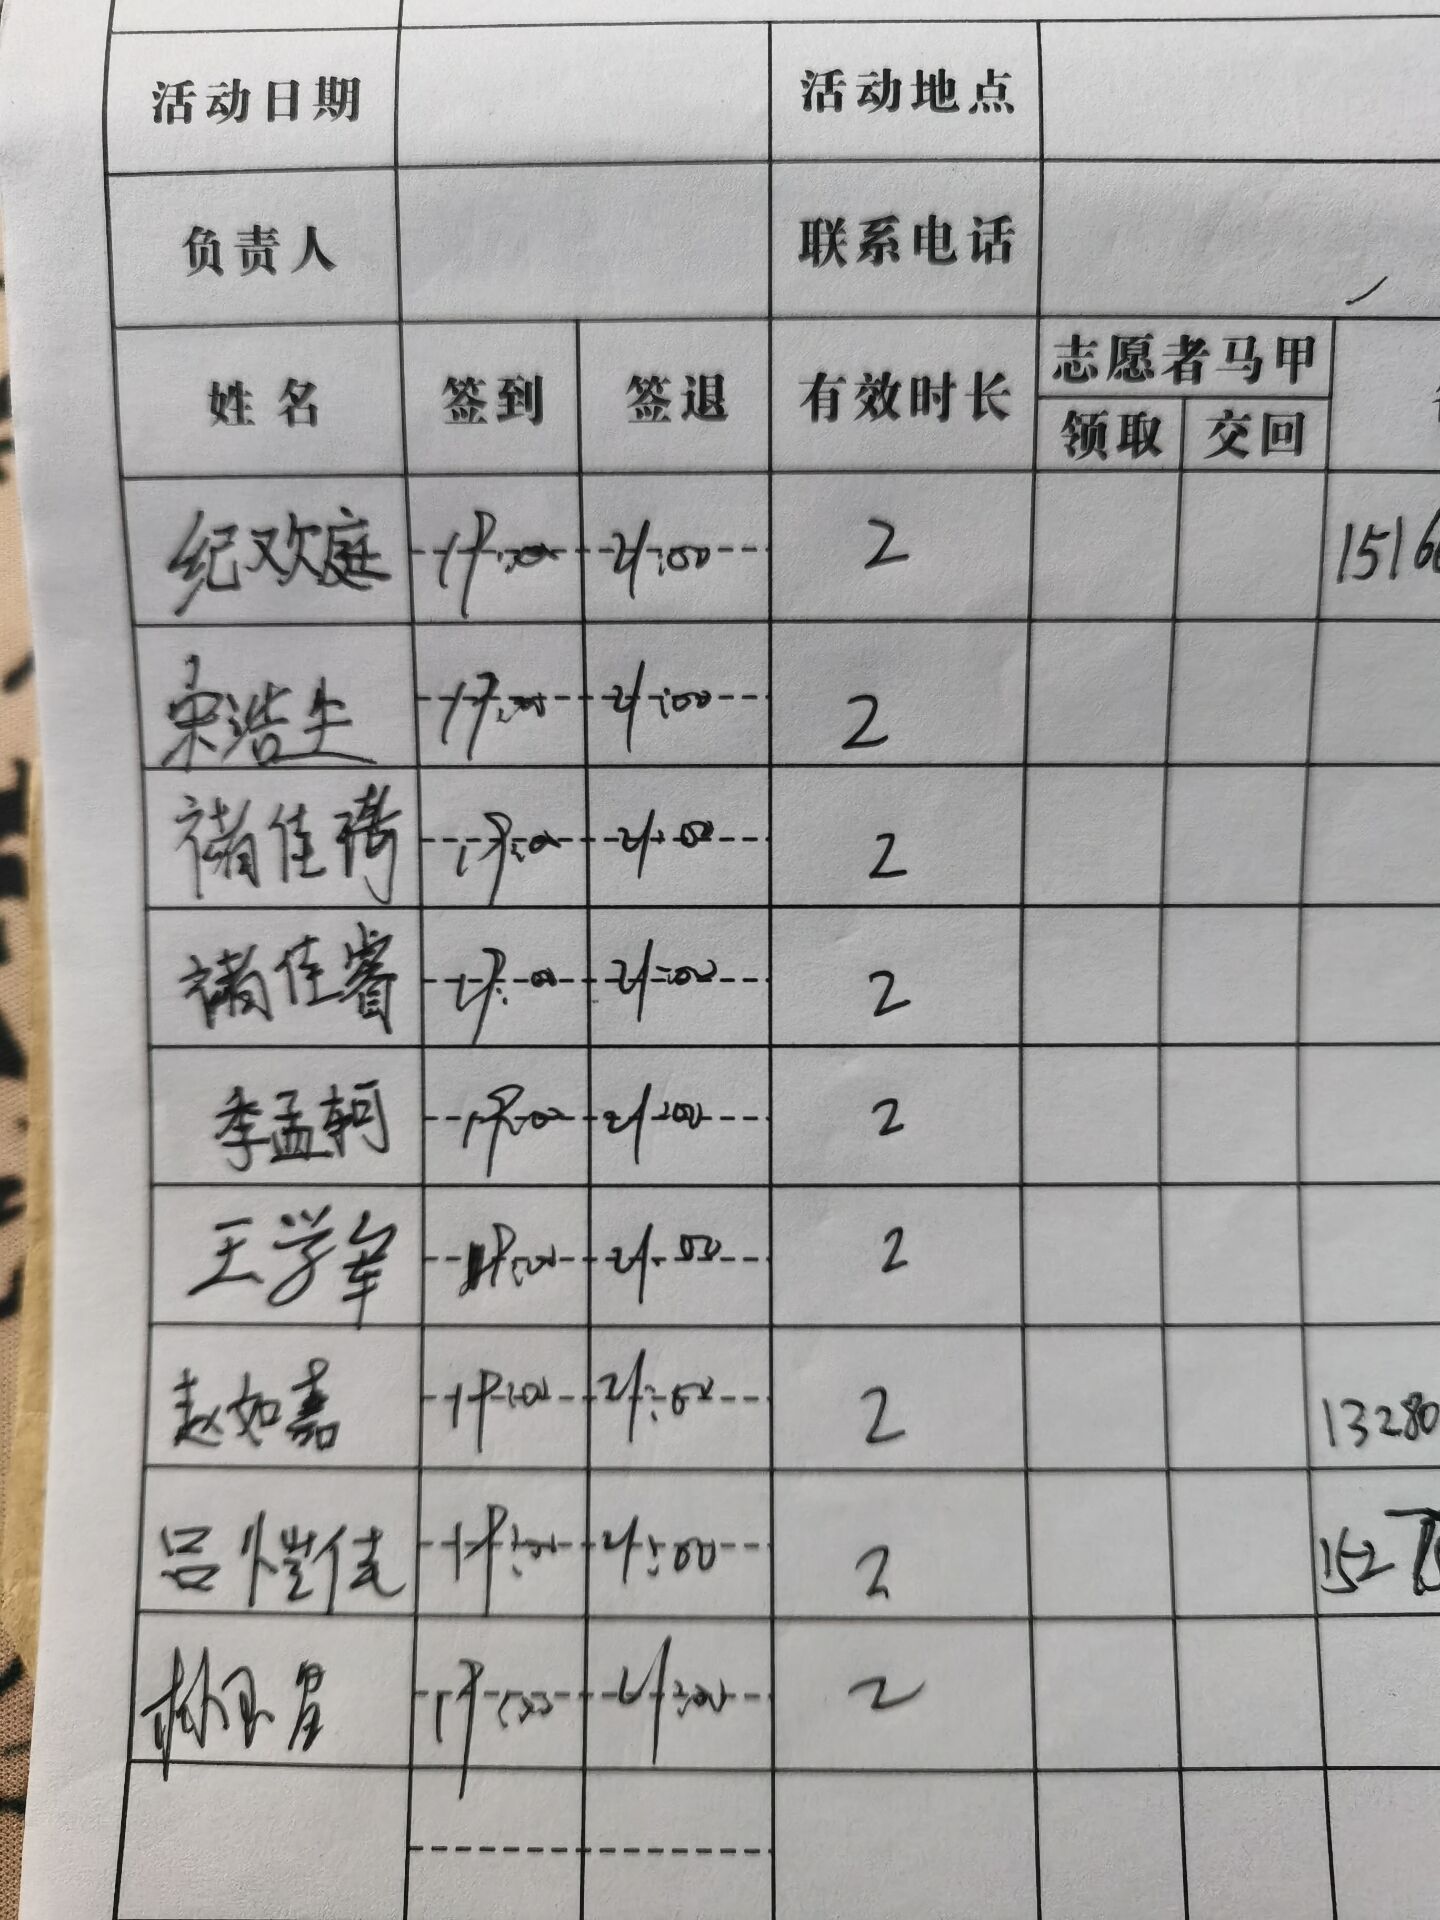 活动日期 活动地点
负责人 联系电话
姓名 签到 签退 有效时长 志愿者马甲
领取 交回
纪欢庭 19:00 21:00 2 15166
宋浩生 19:00 21:00 2
褚佳琦 19:00 21:00 2
褚佳睿 19:00 21:00 2
李孟轲 19:00 21:00 2
王学军 19:00 21:00 2
赵如嘉 19:00 21:00 2 13280
吕恺佳 19:00 21:00 2 152
19:00 21:00 2